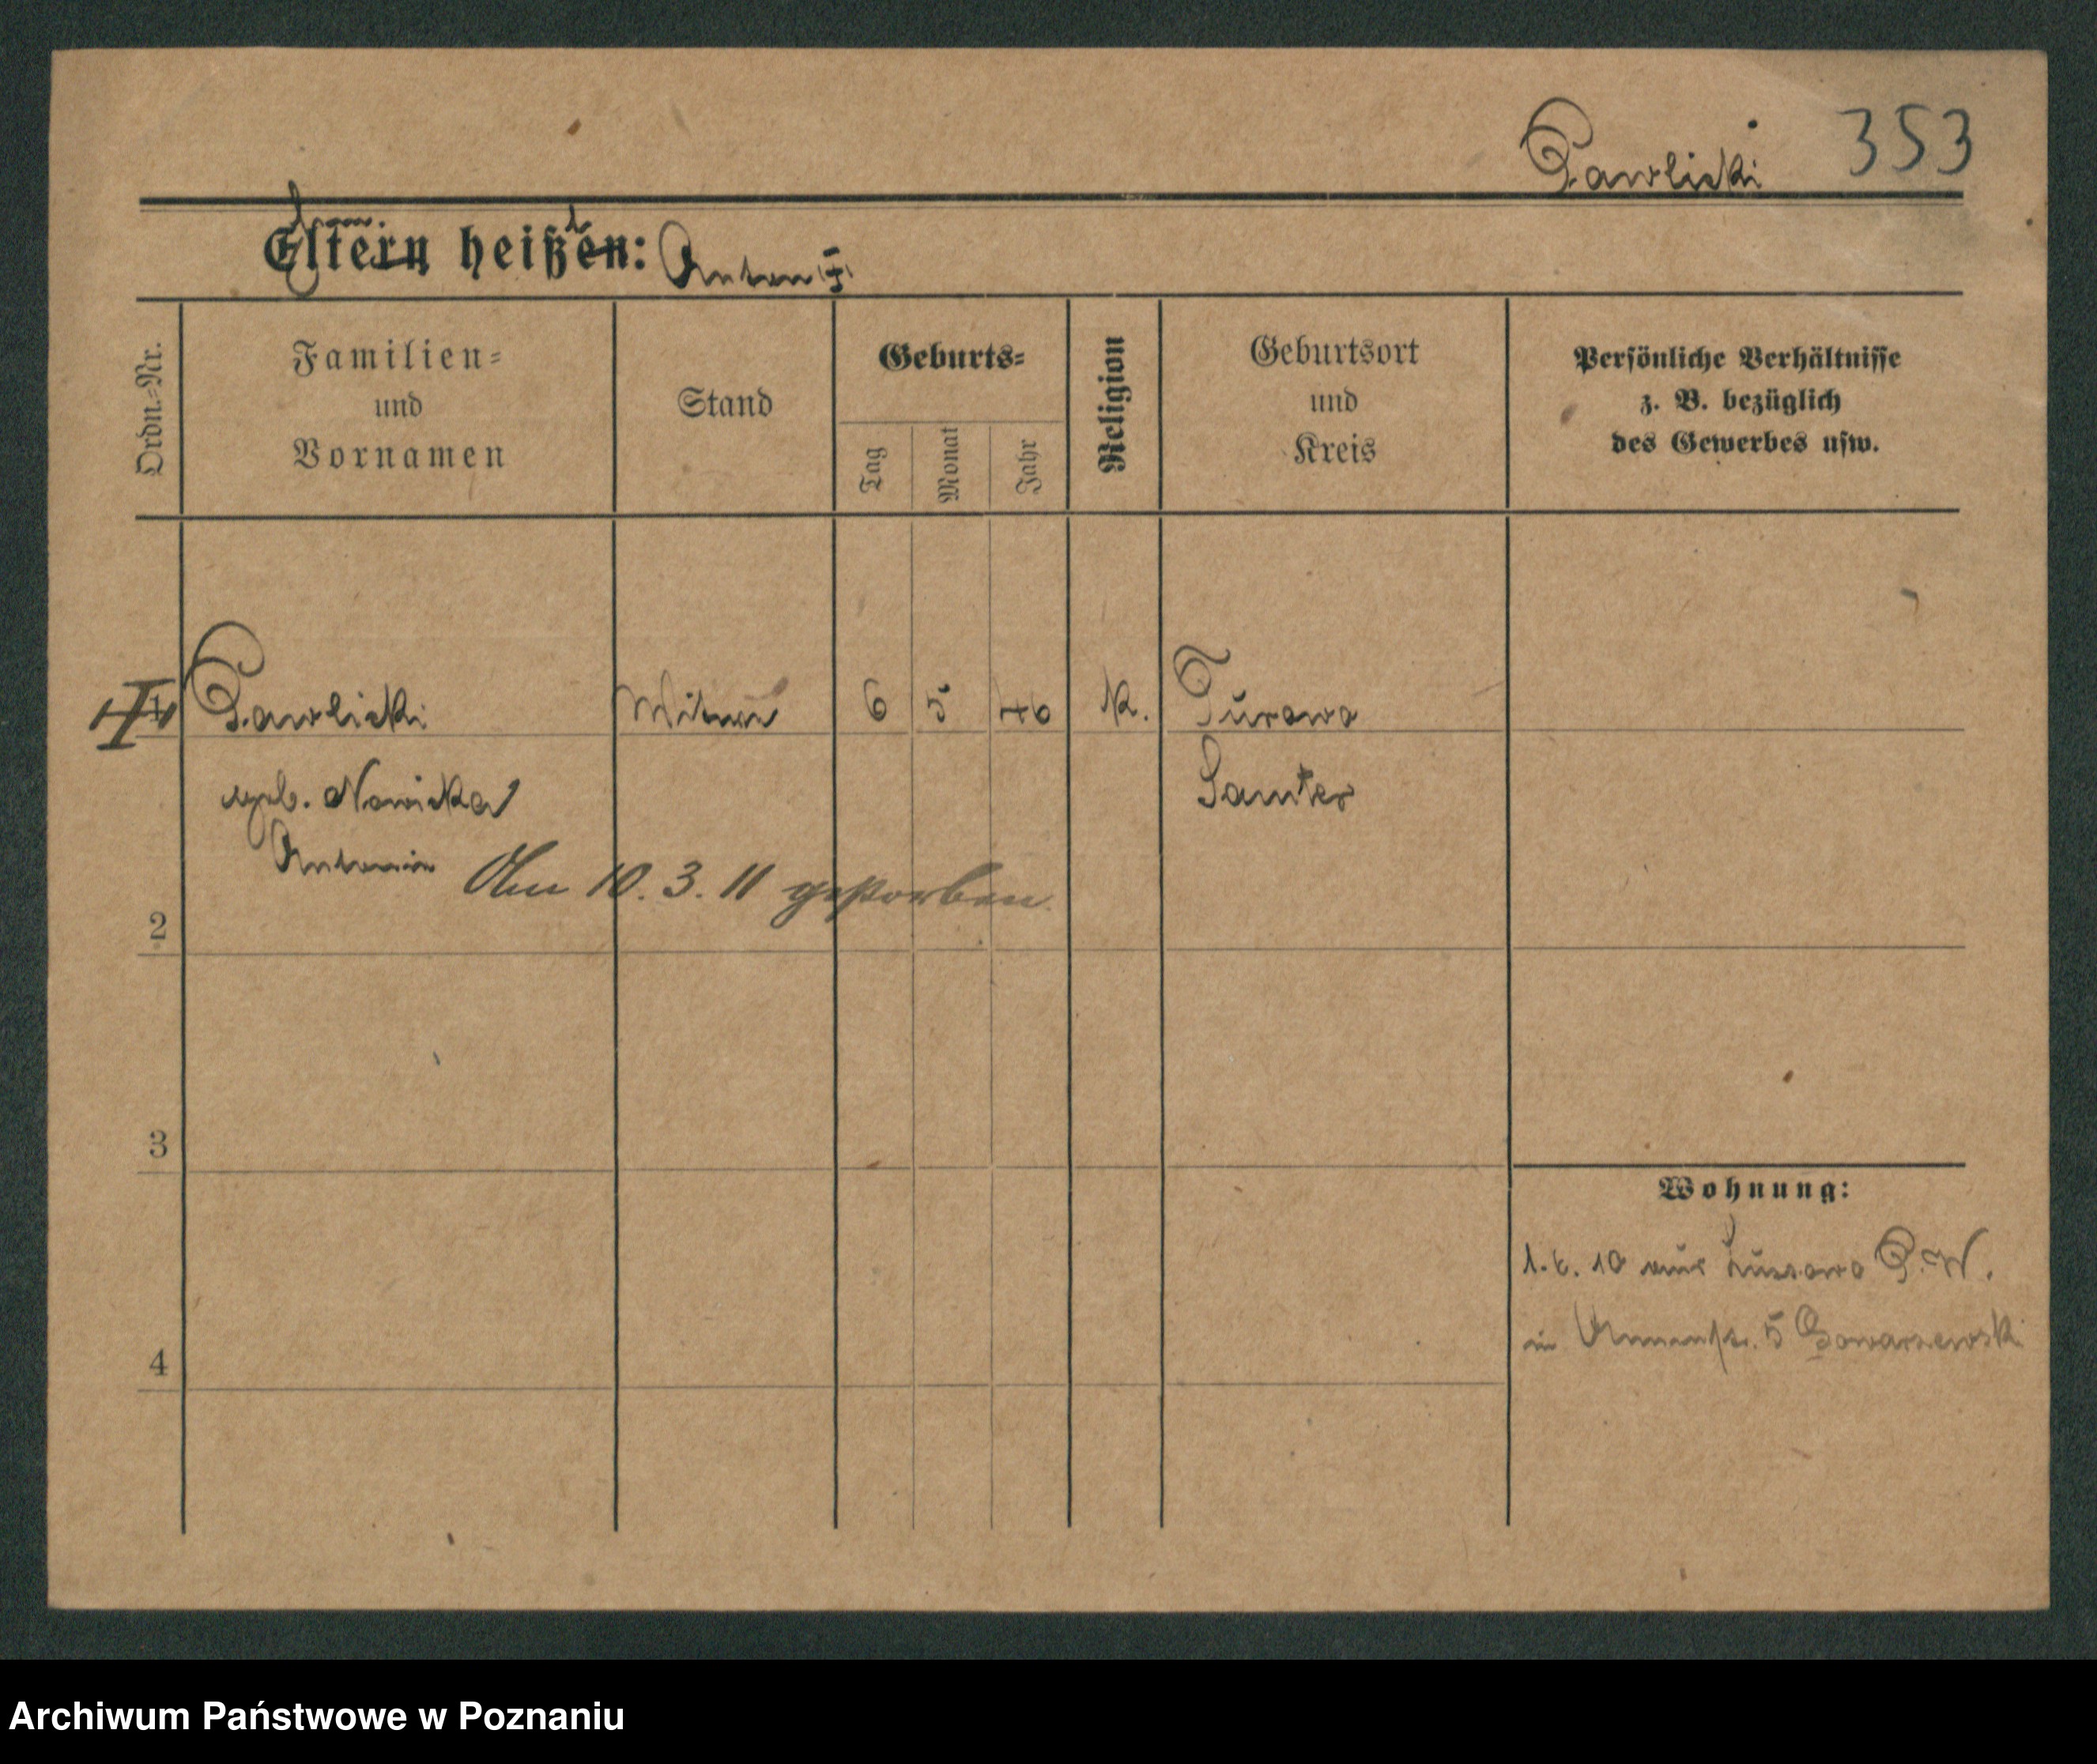 Pawlicki 353
Eltern heißen: Anton
Ordn.-Nr.
Familien-
und
Vornamen
Stand
Geburts-
Tag
Monat
Jahr
Religion
Geburtsort
und
Kreis
Persönliche Verhältnisse
z. B. bezüglich
des Gewerbes usw.
Pawlicki Witwe 6 5 46 k. Turowo
geb. Nowicka Samter
Antonie
Am 10. 3. 11 gestorben.
2
3
4
Wohnung:
1. 6. 10 aus Lussowo P. W.
in 5
Archiwum Państwowe w Poznaniu